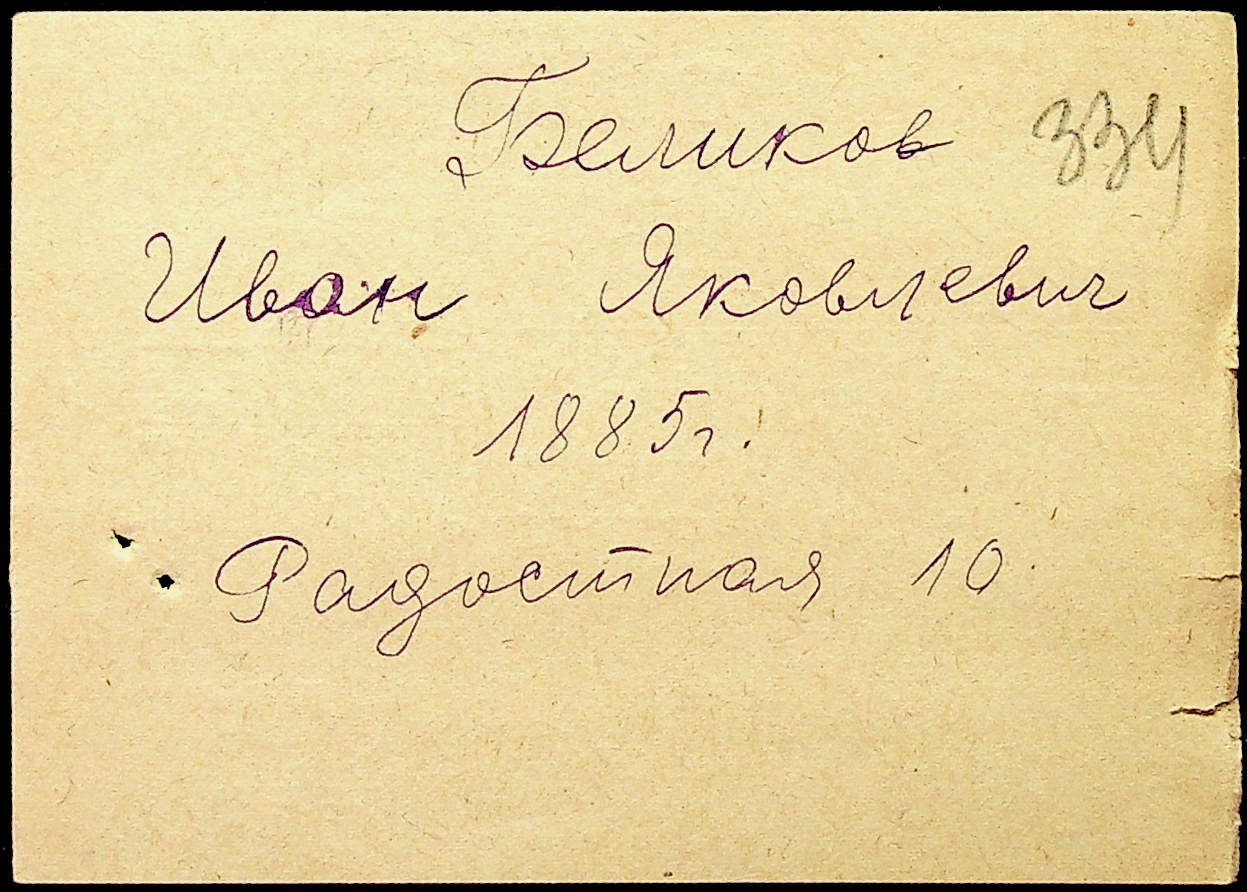 Беликов 334
Иван Яковлевич
1885г.
Радостная 10